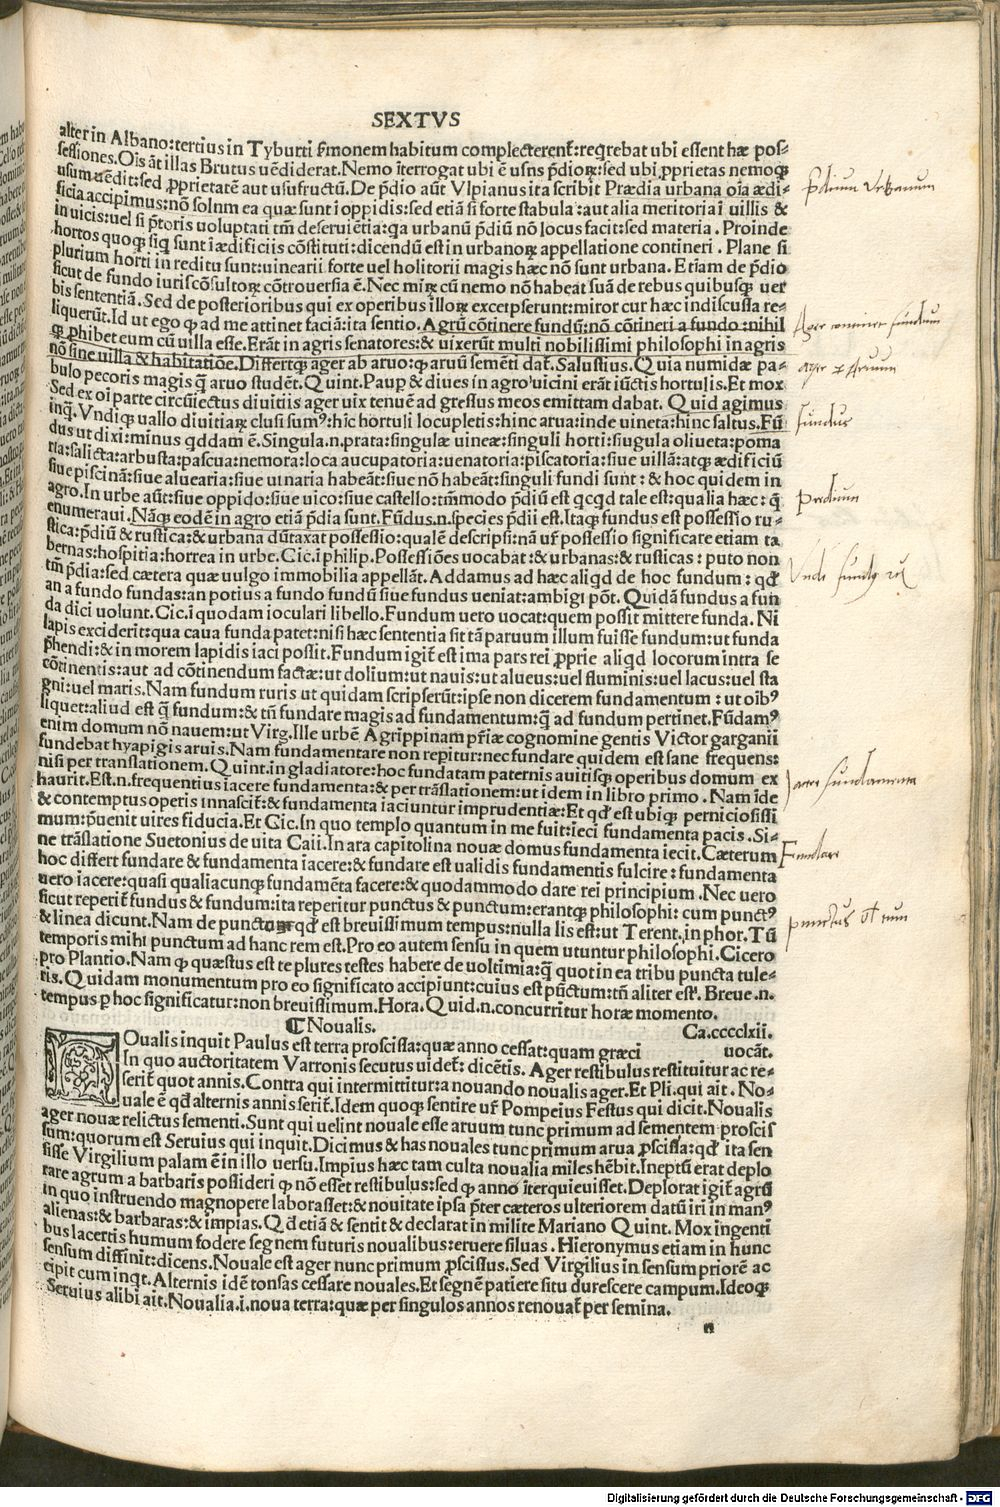 SEXTVS
alter in Albano:tertius in Tyburti s̃monem habitum complecterent̃:reqrebat ubi essent hæ pos-
sessiones.Oi̅s ãt illas Brutus uẽdiderat.Nemo ĩterrogat ubi ẽ usus p̃dioꝝ:sed ubi ꝓprietas nemoqꝫ
usum uẽdit:sed ꝓprietatẽ aut usufructũ.De p̃dio aũt Vlpianus ita scribit Prædia urbana oi̅a ædi-
ficia accipimus:nõ solum ea quæ sunt ĩ oppidis:sed etiã si forte stabula:aut alia meritoria ĩ uillis &
in uicis:uel si p̃toris uoluptati tm̃ deseruĩetia:qa urbanũ p̃diũ nõ locus facit:sed materia. Proinde
hortos quoqꝫ siq sunt ĩ ædificiis cõstituti:dicendũ est in urbanoꝝ appellatione contineri. Plane si
plurium horti in reditu sunt:uinearii forte uel holitorii magis hæc nõ sunt urbana. Etiam de p̃dio
sicut de fundo iuriscõsultoꝝ cõtrouersia ẽ.Nec miꝝ cũ nemo nõ habeat suã de rebus quibusqꝫ uer
bis sententiã. Sed de posterioribus qui ex operibus illoꝝ excerpserunt:miror cur hæc indiscussa re-
liquerũt.Id ut ego ꝙ ad me attinet faciã:ita sentio. Agrũ cõtinere fundũ:nõ cõtineri a fundo:nihil
ꝙ ꝓhibet eum cũ uilla esse.Erãt in agris senatores:& uixerũt multi nobilissimi philosophi in agris
nõ sine uilla & habitatiõe.Differtqꝫ ager ab aruo:ꝙ aruũ semẽti dat̃.Salustius.Quia numidæ pa-
bulo pecoris magis q̃ aruo studẽt.Quint.Paup̱ & diues in agro uicini erãt iũctis hortulis.Et mox
Sed ex oi parte circũiectus diuitiis ager uix tenuẽ ad gressus meos emittam dabat. Quid agimus
inq̃.Vndiqꝫ uallo diuitiaꝝ clusi sumꝰ:hĩc hortuli locupletis:hinc arua:inde uineta:hinc saltus.Fũ
dus ut dixi:minus qddam ẽ.Singula.n.prata:singulæ uineæ:singuli horti:siugula oliueta:poma
ria:salicta:arbusta:pascua:nemora:loca aucupatoria:uenatoria:piscatoria:siue uillã:atqꝫ ædificiũ
siue piscinã:siue aluearia:siue uiuaria habeãt:siue nõ habeãt:singuli fundi sunt:& hoc quidem in
agro.In urbe aũt:siue oppido:siue uico:siue castello:tm̃modo p̃diũ est qcqd tale est:qualia hæc:q̃
enumeraui.Nãqꝫ eodẽ in agro etiã p̃dia sunt.Fũdus.n.species p̃dii est.Itaqꝫ fundus est possessio ru-
stica:p̃diũ & rustica:& urbana dũtaxat possessio:qualẽ descripsi:nã ur̃ possessio significare etiam ta
bernas:hospitia:horrea in urbe.Cic.ĩ philip.Possessiões uocabat:& urbanas:& rusticas:puto non
tm̃ p̃dia:sed cætera quæ uulgo immobilia appellãt.Addamus ad hæc aliqd de hoc fundum:qđ
an a fundo fundas:an potius a fundo fundũ siue fundus ueniat:ambigi põt. Quidã fundus a fun
da dici uolunt.Cic.ĩ quodam ioculari libello.Fundum uero uocat:quem possit mittere funda. Ni
lapis exciderit:qua caua funda patet:nisi hæc sententia sit tã paruum illum fuisse fundum:ut funda
p̃hendi:& in morem lapidis iaci possit.Fundum igit̃ est ima pars rei ꝓprie aliqd locorum intra se
cõtinentis:aut ad cõtinendum factæ:ut dolium:ut nauis:ut alueus:uel fluminis:uel lacus:uel sta
gni:uel maris.Nam fundum ruris ut quidam scripserũt:ipse non dicerem fundamentum:ut oi̅bꝰ
liquet:aliud est q̃ fundum:& tñ fundare magis ad fundamentum:q̃ ad fundum pertinet.Fũdamꝰ
enim domum nõ nauem:ut Virg.Ille urbẽ Agrippinam pr̃iæ cognomine gentis Victor garganii
fundebat hyapigis aruis.Nam fundamentare non rep̱itur:nec fundare quidem est sane frequens:
nisi per translationem.Quint.in gladiatore:hoc fundatam paternis auitisqꝫ operibus domum ex
haurit.Est.n.frequentius iacere fundamenta:& per trãslationem:ut idem in libro primo. Nam ĩde
& contemptus operis innascit̃:& fundamenta iaciuntur imprudentiæ:Et qđ est ubiqꝫ perniciosissi
mum:p̃uenit uires fiducia.Et Cic.In quo templo quantum in me fuit:ieci fundamenta pacis.Si-
ne trãslatione Suetonius de uita Caii.In ara capitolina nouæ domus fundamenta iecit. Cæterum
hoc differt fundare & fundamenta iacere:& fundare est ualidis fundamentis fulcire:fundamenta
uero iacere:quasi qualiacunqꝫ fundamẽta facere:& quodammodo dare rei principium.Nec uero
sicut reperit̃ fundus & fundum:ita reperitur punctus & punctum:erantqꝫ philosophi:cum punctꝰ
& linea dicunt.Nam de puncto qđ est breuissimum tempus:nulla lis est:ut Terent.in phor.Tũ
temporis mihi punctum ad hanc rem est.Pro eo autem sensu in quem utuntur philosophi.Cicero
pro Plantio.Nam ꝙ quæstus est te plures testes habere de uoltimia:q̃ quot in ea tribu puncta tule-
ris.Quidam monumentum pro eo significato accipiunt:cuius est pũctum:tñ aliter est. Breue.n.
tempus p̱ hoc significatur:non breuissimum.Hora.Quid.n.concurritur horæ momento.
¶Noualis. Ca.cccclxii.
NOualis inquit Paulus est terra proscissa:quæ anno cessat:quam græci uocãt.
In quo auctoritatem Varronis secutus uidet̃:dicẽtis. Ager restibulus restituitur ac re-
serit̃ quot annis.Contra qui intermittitur:a nouando noualis ager.Et Pli.qui ait. No-
uale ẽ qđ alternis annis serit̃.Idem quoqꝫ sentire ur̃ Pompeius Festus qui dicit.Noualis
ager nouæ relictus sementi.Sunt qui uelint nouale esse aruum tunc primum ad sementem proscis
sum:quorum est Seruius qui inquit.Dicimus & has nouales tunc primum arua ꝓscissa:qđ ita sen
sisse Virgilium palam ẽ in illo uersu.Impius hæc tam culta noualia miles hẽbit.Ineptũ erat deplo
rare agrum a barbaris possideri ꝙ nõ esset restibulus:sed ꝙ anno ĩterquieuisset.Deplorat igit̃ agrũ
in quo instruendo magnopere laborasset:& nouitate ipsa p̃ter cæteros ulteriorem datũ iri in manꝰ
alienas:& barbaras:& impias.Qđ etiã & sentit & declarat in milite Mariano Quint.Mox ingenti
bus lacertis humum fodere segnem futuris noualibus:eruere siluas. Hieronymus etiam in hunc
sensum diffinit:dicens.Nouale est ager nunc primum ꝓscissus.Sed Virgilius in sensum priorẽ ac
cipit cum inqt.Alternis idẽ tonsas cessare nouales.Et segnẽ patiere situ durescere campum.Ideoqꝫ
Seruius alibi ait.Noualia.i.noua terra:quæ per singulos annos renouat̃ per semina.
n
p̃dium Vrbanum
Ager continet fundum
ager & aruum
fundus
predium
Vnde fundꝰ
iacere fundamenta
Fundare
punctus
Digitalisierung gefördert durch die Deutsche Forschungsgemeinschaft - DFG